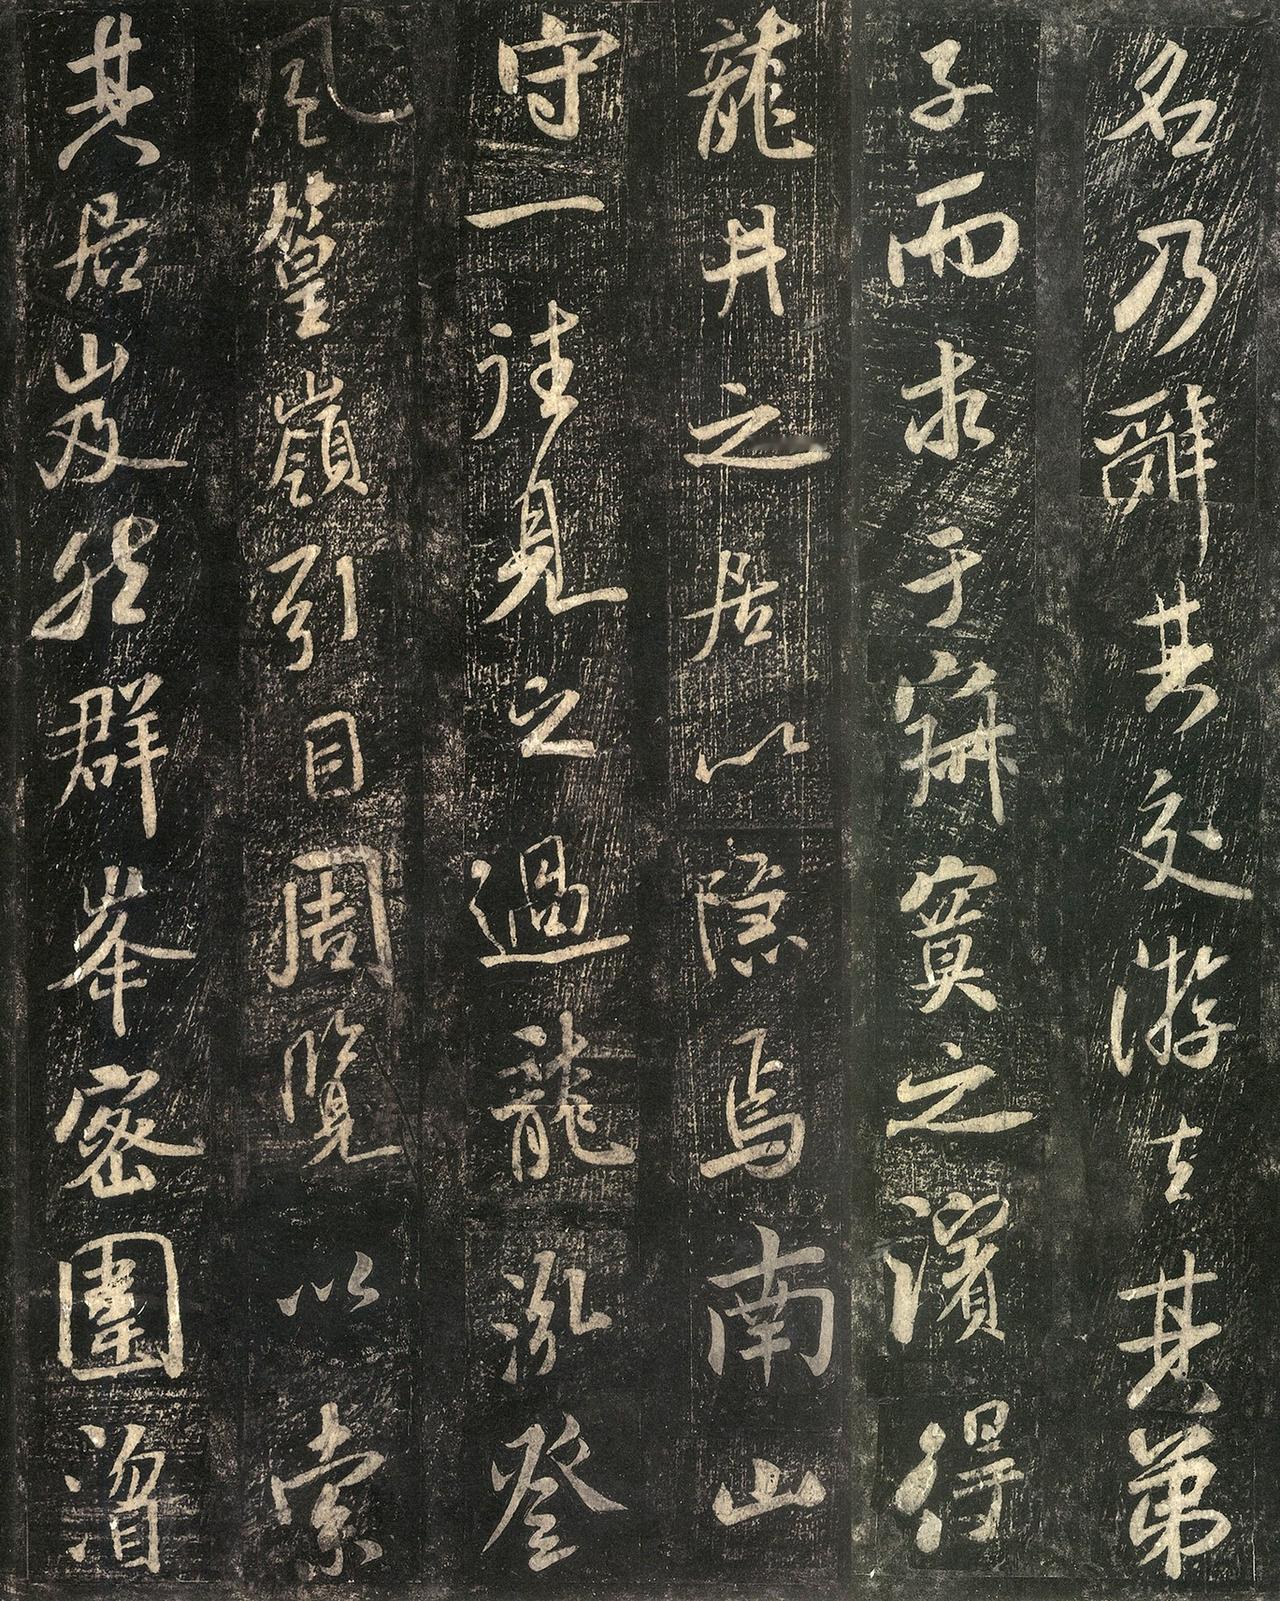 名乃辭其交游去其弟
子而求于寂寞之濱得
龍井之居以隱焉南山
守一往見之過龍泓登
風篁嶺引目周覽以索
其居岌然群峯密圍